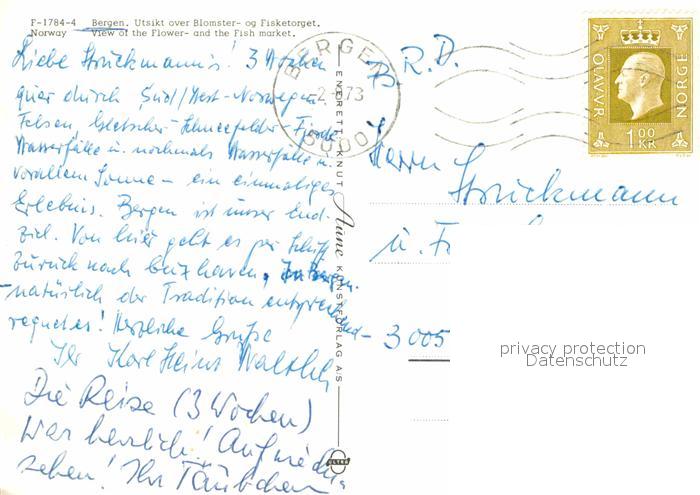 F-1784-4 Bergen. Utsikt over Blomster- og Fisketorget.
Norway View of the Flower- and the Fish market.
Liebe Strückmann's! 3 Wochen
quer durch Süd/West-Norwegen
Felsen Gletscher Schneefelder Fjorde
Wasserfälle u. nochmals Wasserfälle u.
vor allem Sonne - ein einmaliges
Erlebnis. Bergen ist unser End-
ziel. Von hier geht es per Schiff
zurück nach Cuxhaven. In Bergen
natürlich der Tradition entsprechend -
regnet es! Herzliche Grüße
Ihr Karl Heinz
Die Reise (3 Wochen)
war herrlich! Auf
sehen! Ihr Täubchen
ENERETT: KNUT Aune KUNSTFORLAG A/S
ULTRA
BERGEN
-2.-8.73
B.R.D.
OLAV.V.R
NORGE
1.00
KR
Herrn
Strückmann
u. F
3005
privacy protection
Datenschutz